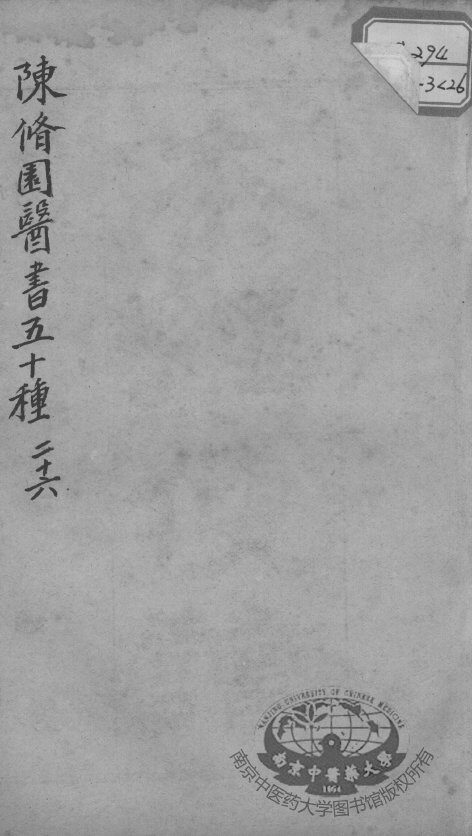 陳脩園醫書五十種 二十六
294
-3<26
NANJING UNIVERSITY OF CHINESE MEDICINE
南京中醫藥大學
1954
南京中医药大学图书馆版权所有